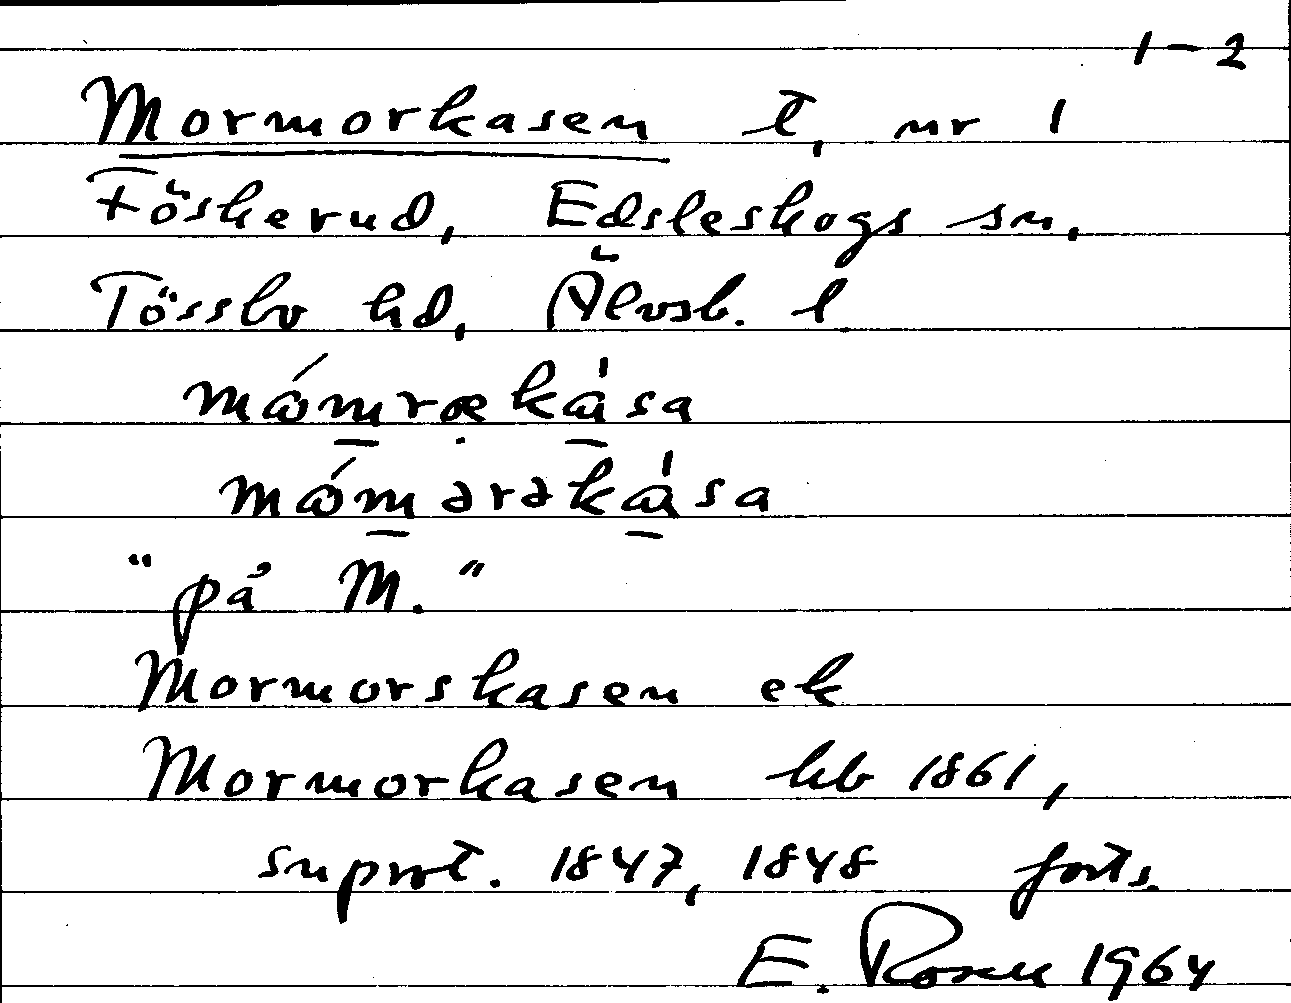 1-2
Mormorkasen t, nr 1
Föskerud, Edsleskogs sn,
Tössbo hd, Älvsb. l
mώmrœkàsa
mώmərəkàsa
"på M."
Mormorskasen ek
Mormorkasen kb 1861,
snprot. 1847, 1848 forts.
E. Rosell 1964